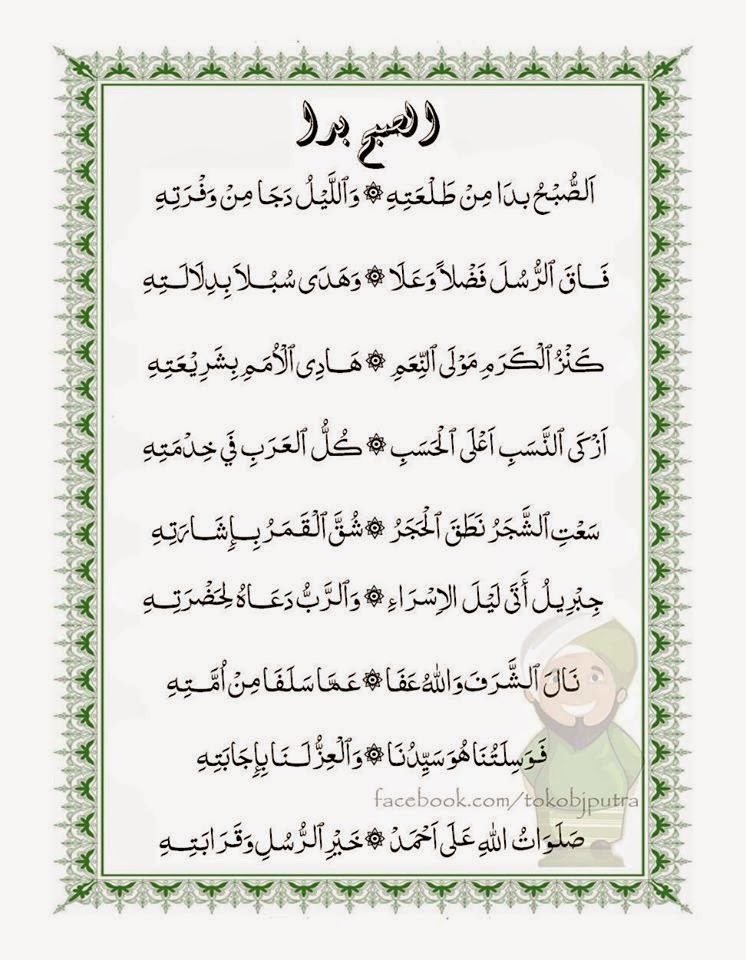 الصبح بدا
اَلصُّبْحُ بدَا مِنْ طَلْعَتِهِ ۞ وَٱللَّيْلُ دَجَا مِنْ وَفْرَتِهِ
فَــاقَ ٱلرُّسُلَ فَضْلاً وَعَلَا ۞ وَهَدَى سُبُلاً بِدِلَالَــتِهِ
كَنْزُ ٱلْكَرَمِ مَوْلَى ٱلنِّعَمِ ۞ هَــادِى ٱلْأُمَمِ بِشَرِيْعَتِهِ
اَزْكَى ٱلنَّسَبِ اَعْلَى ٱلْحَسَبِ ۞ كُلُّ ٱلعَرَبِ فَي خِدْمَتِهِ
سَعَتِ ٱلشَّجَرُ نَطَقَ ٱلْحَجَرُ ۞ شُقَّ ٱلْقَمَرُ بِــإِشَــارَتِهِ
جِبْرِيلُ أَتَى لَيْلَ الإِسْرَاءِ ۞ وَٱلرَّبُّ دَعَــاهُ لِحَضْرَتِــهِ
نَالَ ٱلشَّرَفَ وَاللهُ عَفَا ۞ عَمَّا سَلَفَا مِنْ اُمَّــتِهِ
فَوَسِلَتُنَا هُوَ سَيِّدُنَا ۞ وَٱلْعِزُّ لَــنَا بِإِجَابَتِهِ
facebook.com/tokobjputra
صَلَوَاتُ اللهِ عَلَى اَحْمَدْ ۞ خَيْرِ ٱلرُّسُلِ وَقَرَابَتِــهِ